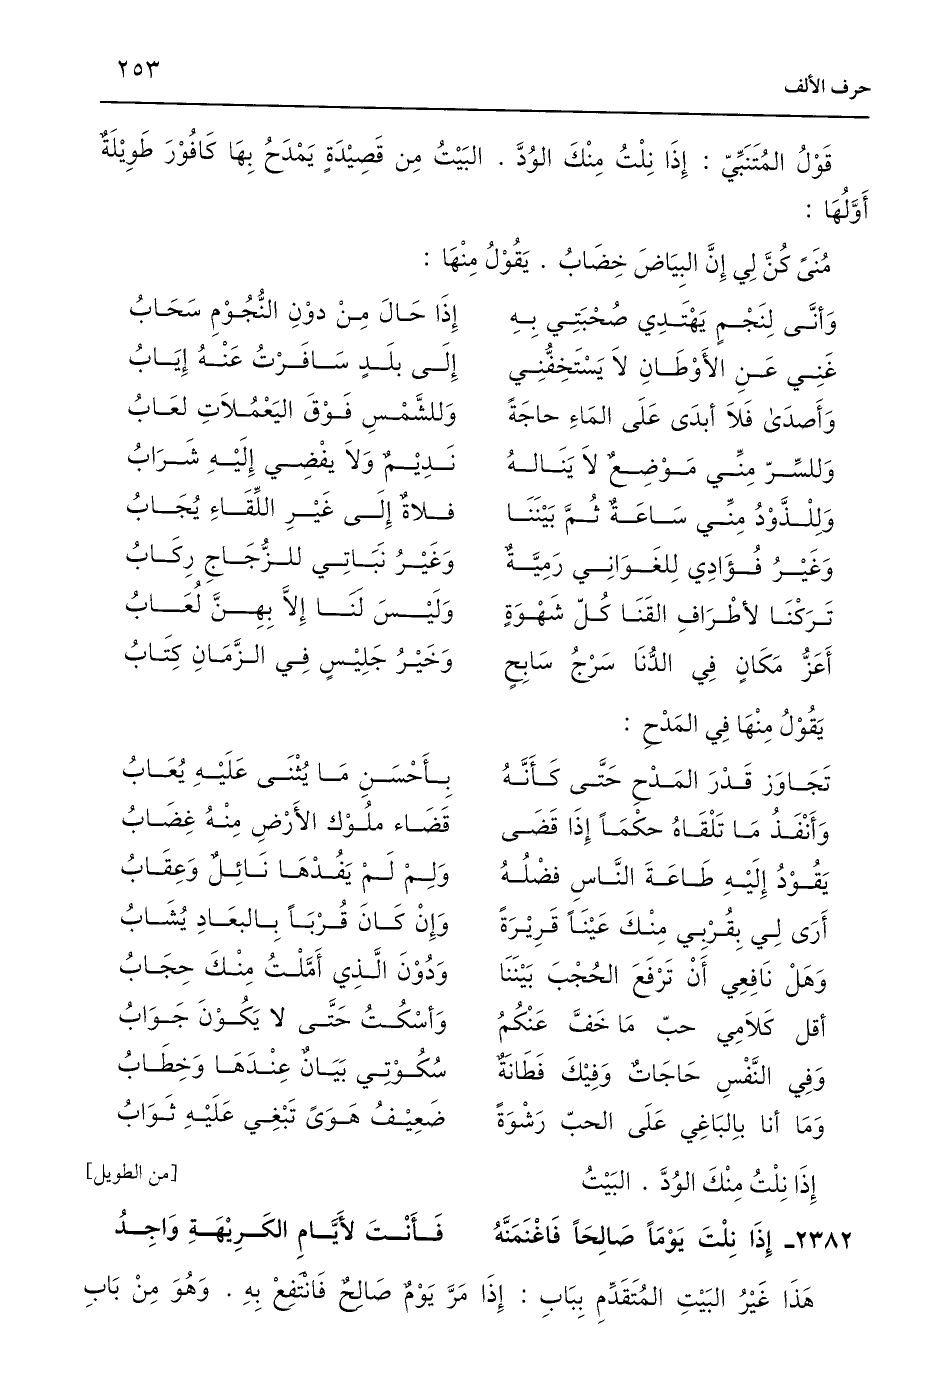 حرف الألف ٢٥٣
قَوْلُ المُتَنَبِّيّ : إِذَا نِلْتُ مِنْكَ الوُدَّ . البَيْتُ مِن قَصِيْدَةٍ يَمْدَحُ بِهَا كَافُوْرَ طَوِيْلَةٌ
أَوَّلُهَا :
مُنَىً كُنَّ لِي إِنَّ البَيَاضَ خِضَابُ . يَقُوْلُ مِنْهَا :
وَأنَّى لِنَجْمٍ يَهْتَدِي صُحْبَتِي بِهِ إِذَا حَالَ مِنْ دوْنِ النُّجُوْمِ سَحَابُ
غَنِي عَنِ الأَوْطَانِ لاَ يَسْتَخِفُّنِي إِلَى بلَدٍ سَافَرْتُ عَنْهُ إِيَابُ
وَأصدَىْ فَلاَ أبدَى عَلَى المَاءِ حاجَةً وَللشَّمْسِ فَوْقَ اليَعْمُلاَتِ لعَابُ
وَللسِّرّ مِنِّي مَوْضِعٌ لاَ يَنَالهُ نَدِيْمٌ وَلاَ يفْضِي إِلَيْهِ شَرَابُ
وَلِلْذَّوْدُ مِنِّي سَاعَةٌ ثُمَّ بَيْنَنَا فلاةٌ إِلَى غَيْرِ اللِّقَاءِ يُجَابُ
وَغَيْرُ فُؤَادِي لِلغَوَانِي رَمِيَّةٌ وَغَيْرُ بَنَانِي للزُّجَاجِ رِكَابُ
تَرَكْنَا لأَطْرَافِ القَنَا كُلّ شَهْوَةٍ وَلَيْسَ لَنَا إِلاَّ بِهِنَّ لُعَابُ
أعَزُّ مَكَانٍ فِي الدُّنَا سَرْجُ سَابِحٍ وَخَيْرُ جَلِيْسٍ فِي الزَّمَانِ كِتَابُ
يَقُوْلُ مِنْهَا فِي المَدْحِ :
تَجَاوَزَ قَدْرَ المَدْحِ حَتَّى كَأَنَّهُ بِأَحْسَنِ مَا يُثْنَى عَلَيْهِ يُعَابُ
وَأنْفَذُ مَا تَلْقَاهُ حكْمَاً إِذَا قضَى قضَاء ملُوْك الأَرْضِ مِنْهُ غِضَابُ
يَقُوْدُ إِلَيْهِ طَاعَةَ النَّاسِ فضْلُهُ وَلِمْ لَمْ يَقُدْهَا نَائِلٌ وَعِقَابُ
أَرَى لِي بِقُرْبِي مِنْكَ عَيْنَاً قَرِيْرَةً وَإِنْ كَانَ قُرْبَاً بِالبَعَادِ يُشَابُ
وَهَلْ نَافِعِي أَنْ تَرْفَعَ الحُجْبَ بَيْنَنَا وَدُوْنَ الَّذِي أَمَّلْتُ مِنْكَ حِجَابُ
أقل كَلاَمِي حبّ مَا خَفَّ عَنْكُم وَأسْكُتُ حَتَّى لا يَكُوْنَ جَوَابُ
وَفِي النَّفْسِ حَاجَاتٌ وَفِيْكَ فَطَانَةٌ سُكُوْتِي بَيَانٌ عِنْدَهَا وَخِطَابُ
وَمَا أنا بِالبَاغِي عَلَى الحبّ رَشْوَةً ضَعِيْفُ هَوَىً تَبْغَي عَلَيْهِ ثَوَابُ
إِذَا نِلْتُ مِنْكَ الوُدَّ . البَيْتُ [من الطويل]
٢٣٨٢ـ إِذَا نِلْتَ يَوْمَاً صَالِحَاً فَاغْنَمَنَّهُ فَأَنْتَ لأَيَّامِ الكَرِيْهَةِ وَاجِدُ
هَذَا غَيْرُ البَيْتِ المُتَقَدِّمِ بِبَابِ : إِذَا مَرَّ يَوْمٌ صَالِحٌ فَانْتَفِعْ بِهِ . وَهُوَ مِنْ بَابِ